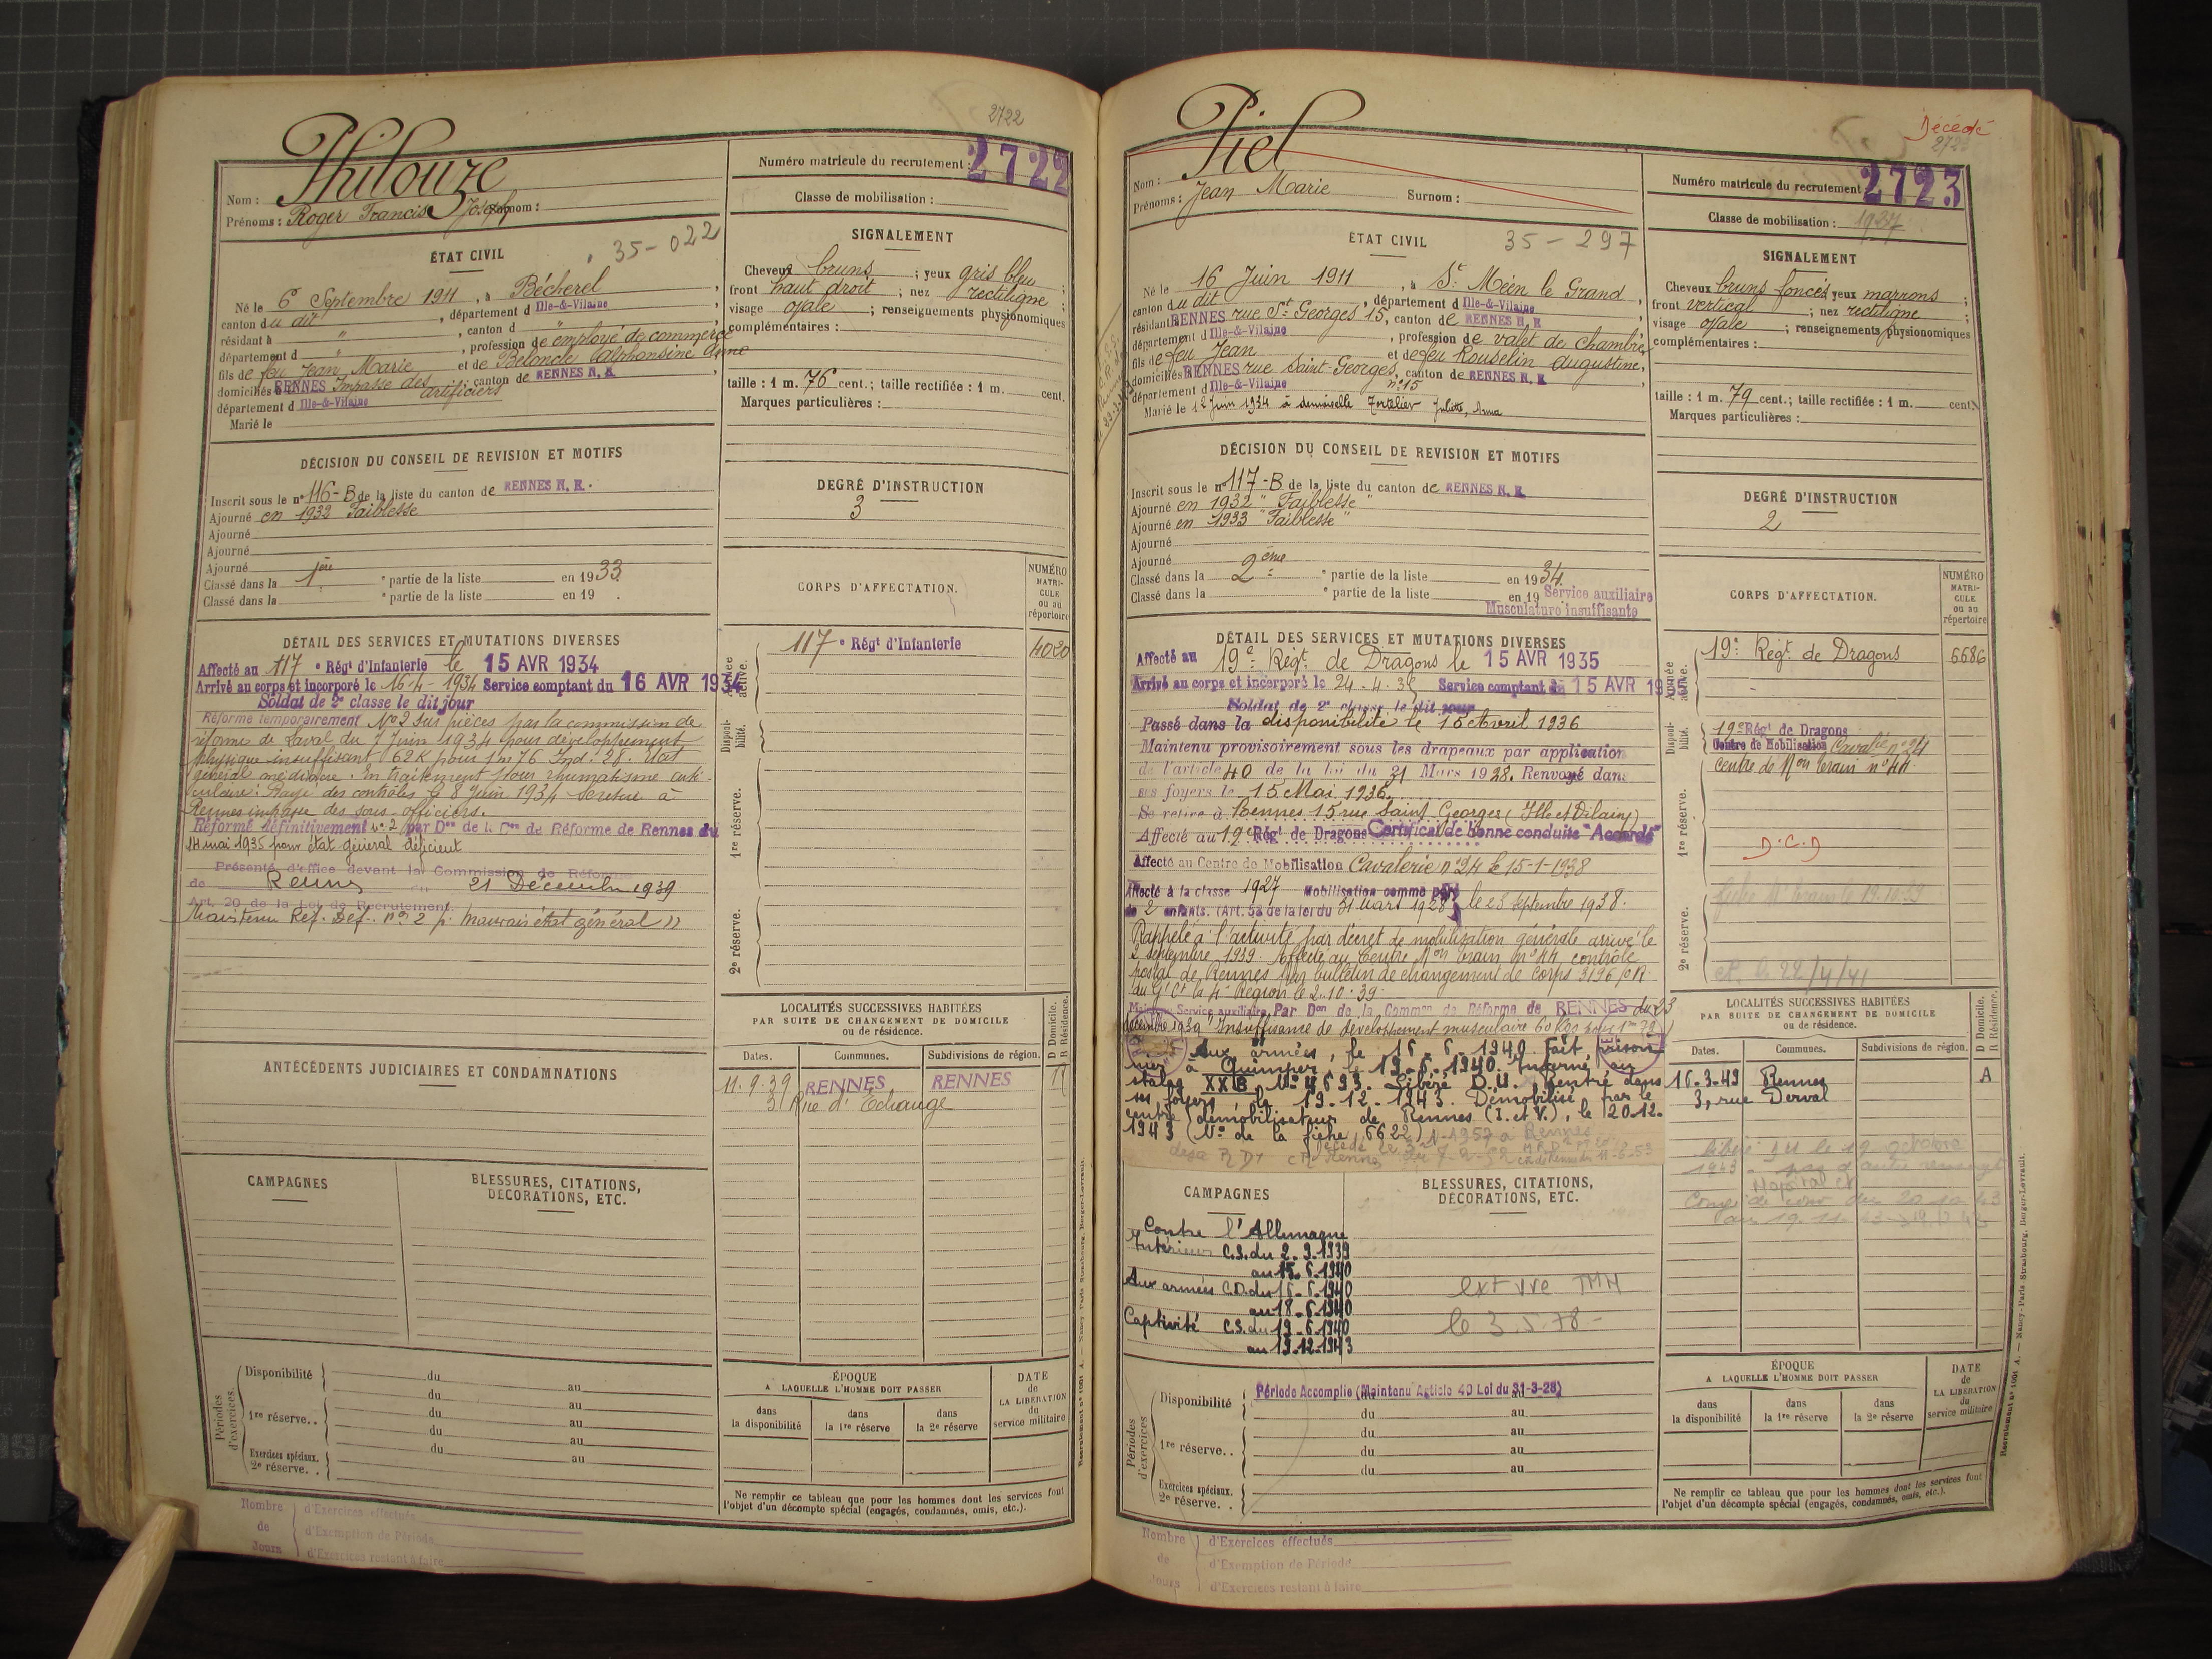 2722
Philouze
Nom :
Prénoms : Roger Francis Joseph Surnom :
Numéro matricule du recrutement : 2722
Classe de mobilisation :
ÉTAT CIVIL
35-022
Né le 6 Septembre 1911, à Bécherel,
canton du dit, département d Ille-&-Vilaine,
résidant à ", canton d "
département d ", profession de employé de commerce
fils de feu Jean Marie et de Beloncle Alphonsine Anne
domiciliés à RENNES Impasse des artificiers, canton de RENNES N. E.
département d Ille-&-Vilaine
Marié le
SIGNALEMENT
Cheveux bruns ; yeux gris bleu ;
front haut droit ; nez rectiligne ;
visage ovale ; renseignements physionomiques
complémentaires :
taille : 1 m. 76 cent.; taille rectifiée : 1 m. cent.
Marques particulières :
DÉCISION DU CONSEIL DE REVISION ET MOTIFS
Inscrit sous le n° 116-B de la liste du canton de RENNES N. E.
Ajourné en 1932 Faiblesse
Ajourné
Ajourné
Ajourné
Classé dans la 1ère partie de la liste en 1933
Classé dans la ° partie de la liste en 19 .
DEGRÉ D'INSTRUCTION
3
CORPS D'AFFECTATION.
NUMÉRO MATRICULE ou au répertoire
Armée active.
117e Régt d'Infanterie 4020
Disponibilité.
1re réserve.
2e réserve.
DÉTAIL DES SERVICES ET MUTATIONS DIVERSES
Affecté au 117e Régt d'Infanterie le 15 AVR 1934
Arrivé au corps et incorporé le 16-4-1934 Service comptant du 16 AVR 1934
Soldat de 2e classe le dit jour
Réformé temporairement N°2 sur pièces par la commission de
réforme de Laval du 7 Juin 1934 pour développement
physique insuffisant 62 K pour 1m76 Ind. 28. Etat
général médiocre. En traitement pour rhumatisme arti-
culaire. Rayé des contrôles le 8 Juin 1934 Se retire à
Rennes impasse des sous officiers.
Réformé définitivement n° 2 par Don de la Con de Réforme de Rennes du
14 mai 1935 pour état général déficient
Présenté d'office devant la Commission de Réforme
de Rennes du 21 Décembre 1939
Art. 20 de la Loi de Recrutement.
Maintenu Réf. Déf. n° 2 p. Mauvais état général
ANTÉCÉDENTS JUDICIAIRES ET CONDAMNATIONS
LOCALITÉS SUCCESSIVES HABITÉES
PAR SUITE DE CHANGEMENT DE DOMICILE
ou de résidence.
D Domicile.
R Résidence.
Dates. Communes. Subdivisions de région.
11.9.39 RENNES RENNES
3 Rue d'Echange
CAMPAGNES
BLESSURES, CITATIONS,
DÉCORATIONS, ETC.
Périodes d'exercices.
Disponibilité du au
du au
1re réserve.. du au
du au
Exercices spéciaux.
2e réserve. . du au
ÉPOQUE
A LAQUELLE L'HOMME DOIT PASSER
DATE de LA LIBÉRATION du service militaire
dans la disponibilité
dans la 1re réserve
dans la 2e réserve
Ne remplir ce tableau que pour les hommes dont les services font
l'objet d'un décompte spécial (engagés, condamnés, omis, etc.).
Nombre de Jours
d'Exercices effectués
d'Exemption de Période
d'Exercices restant à faire
Recrutement n° 1001 A. — Nancy-Paris-Strasbourg, Berger-Levrault.
Décédé
Piel
Nom :
Prénoms : Jean Marie Surnom :
Numéro matricule du recrutement 2723
Classe de mobilisation : 1927
ÉTAT CIVIL
35-297
Né le 16 Juin 1911, à St Méen le Grand,
canton du dit, département d Ille-&-Vilaine
résidant RENNES rue St Georges 15, canton de RENNES N. E
département d Ille-&-Vilaine, profession de valet de chambre,
fils de feu Jean et de feu Rouselin Augustine,
domiciliés RENNES rue Saint-Georges, n°15 canton de RENNES N. E
département d Ille-&-Vilaine
Marié le 12 Juin 1934 à demoiselle Juliette, Anna
SIGNALEMENT
Cheveux bruns foncés yeux marrons ;
front vertical ; nez rectiligne ;
visage ovale ; renseignements physionomiques
complémentaires :
taille : 1 m. 79 cent.; taille rectifiée : 1 m. cent.
Marques particulières :
DÉCISION DU CONSEIL DE REVISION ET MOTIFS
Inscrit sous le n° 117-B de la liste du canton de RENNES N. E
Ajourné en 1932 "Faiblesse"
Ajourné en 1933 "Faiblesse"
Ajourné
Ajourné
Classé dans la 2ème partie de la liste en 1934.
Classé dans la ° partie de la liste en 19 Service auxiliaire
Musculature insuffisante
DEGRÉ D'INSTRUCTION
2
CORPS D'AFFECTATION.
NUMÉRO MATRICULE ou au répertoire
Armée active.
19e Régt. de Dragons 6686
Disponibilité.
19e Régt de Dragons
Centre de Mobilisation Cavalie n°24
Centre de Mon train n°44
1re réserve.
D.C.D
2e réserve.
le 22/4/41
DÉTAIL DES SERVICES ET MUTATIONS DIVERSES
Affecté au 19e Régt. de Dragons le 15 AVR 1935
Arrivé au corps et incorporé le 24.4.35 Service comptant du 15 AVR 1935
Soldat de 2e classe le dit jour
Passé dans la disponibilité le 15 Avril 1936
Maintenu provisoirement sous les drapeaux par application
de l'article 40 de la loi du 31 Mars 1928. Renvoyé dans
ses foyers le 15 Mai 1936.
Se retire à Rennes 15 rue Saint Georges (Ille et Vilaine)
Affecté au 19e Régt de Dragons Certificat de bonne conduite "Accordé"
Affecté au Centre de Mobilisation Cavalerie n°24 le 15-1-1938
Affecté à la classe 1927 Mobilisation comme père
de 2 enfants. (Art. 58 de la loi du 31 Mars 1928) le 28 septembre 1938.
Rappelé à l'activité par décret de mobilisation générale arrivé le
2 septembre 1939. Affecté au Centre Mon train n°44 contrôle
postal de Rennes par bulletin de changement de corps 3196/CR
du Gl Ct la 4e Région le 2.10.39.
Maintenu Service auxiliaire Par Don de la Comme de Réforme de RENNES du 23
décembre 1939 "Insuffisance de développement musculaire 60 k pour 1m79"
Aux armées, le 16-6-1940. Fait prison-
nier à Quimper, le 19-6-1940. Interné au
stalag XXB, N° 4693. Libéré D.U. Rentré dans
ses foyers, le 19-12-1943. Démobilisé par le
centre démobilisateur de Rennes (I. et V.), le 20.12.
1943 (N° de la fiche, 6622)
CAMPAGNES
BLESSURES, CITATIONS,
DÉCORATIONS, ETC.
Contre l'Allemagne
Intérieur C.S. du 2.9.1939
au 15.6.1940
Aux armées C.D. du 16-6-1940
au 18.6.1940
Captivité C.S. du 19-6-1940
au 19.12.1943
le 3.5.78
LOCALITÉS SUCCESSIVES HABITÉES
PAR SUITE DE CHANGEMENT DE DOMICILE
ou de résidence.
D Domicile.
R Résidence.
Dates. Communes. Subdivisions de région.
16.3.49 Rennes A
3, rue Derval
Périodes d'exercices
Disponibilité Période Accomplie (Maintenu Article 40 Loi du 31-3-28)
du au
1re réserve. . du au
du au
du au
Exercices spéciaux.
2e réserve. .
ÉPOQUE
A LAQUELLE L'HOMME DOIT PASSER
DATE de LA LIBÉRATION du service militaire
dans la disponibilité
dans la 1re réserve
dans la 2e réserve
Ne remplir ce tableau que pour les hommes dont les services font
l'objet d'un décompte spécial (engagés, condamnés, omis, etc.).
Nombre de Jours
d'Exercices effectués
d'Exemption de Période
d'Exercices restant à faire
Recrutement n° 1001 A. — Nancy-Paris-Strasbourg, Berger-Levrault.